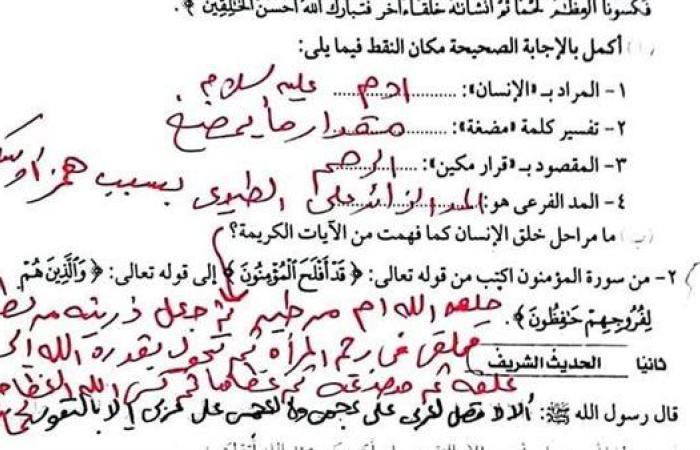 فكسونا العظم لحما ثم أنشأنه خلقا ءاخر فتبارك الله أحسن الخلقين ﴾.
(أ) أكمل بالإجابة الصحيحة مكان النقط فيما يلى:
١- المراد بـ «الإنسان»: ادم عليه سلام
٢- تفسير كلمة «مضغة»: مقدار ما يمضغ
٣- المقصود بـ «قرار مكين»: الرحم
٤- المد الفرعى هو: المد الزائد على الطبيعى بسبب همز أو سكـ
(ب) ما مراحل خلق الإنسان كما فهمت من الآيات الكريمة؟
٢- من سورة المؤمنون اكتب من قوله تعالى: ﴿ قَدْ أَفْلَحَ الْمُؤْمِنُونَ ﴾ إلى قوله تعالى: ﴿ وَالَّذِينَ هُمْ
لِفُرُوجِهِمْ حَافِظُونَ ﴾.
خلق الله ادم من طين ثم جعل ذريته من نطـ
ثانيا الحديث الشريف
فى رحم المرأه ثم تتحول بقدرة الله الى
علقه ثم مضغه ثم عظاما ثم كسى الله العظام
قال رسول الله ﷺ: ألا لا فضل لعربى على عجمى ولا لعجمى على عربى إلا بالتقوى